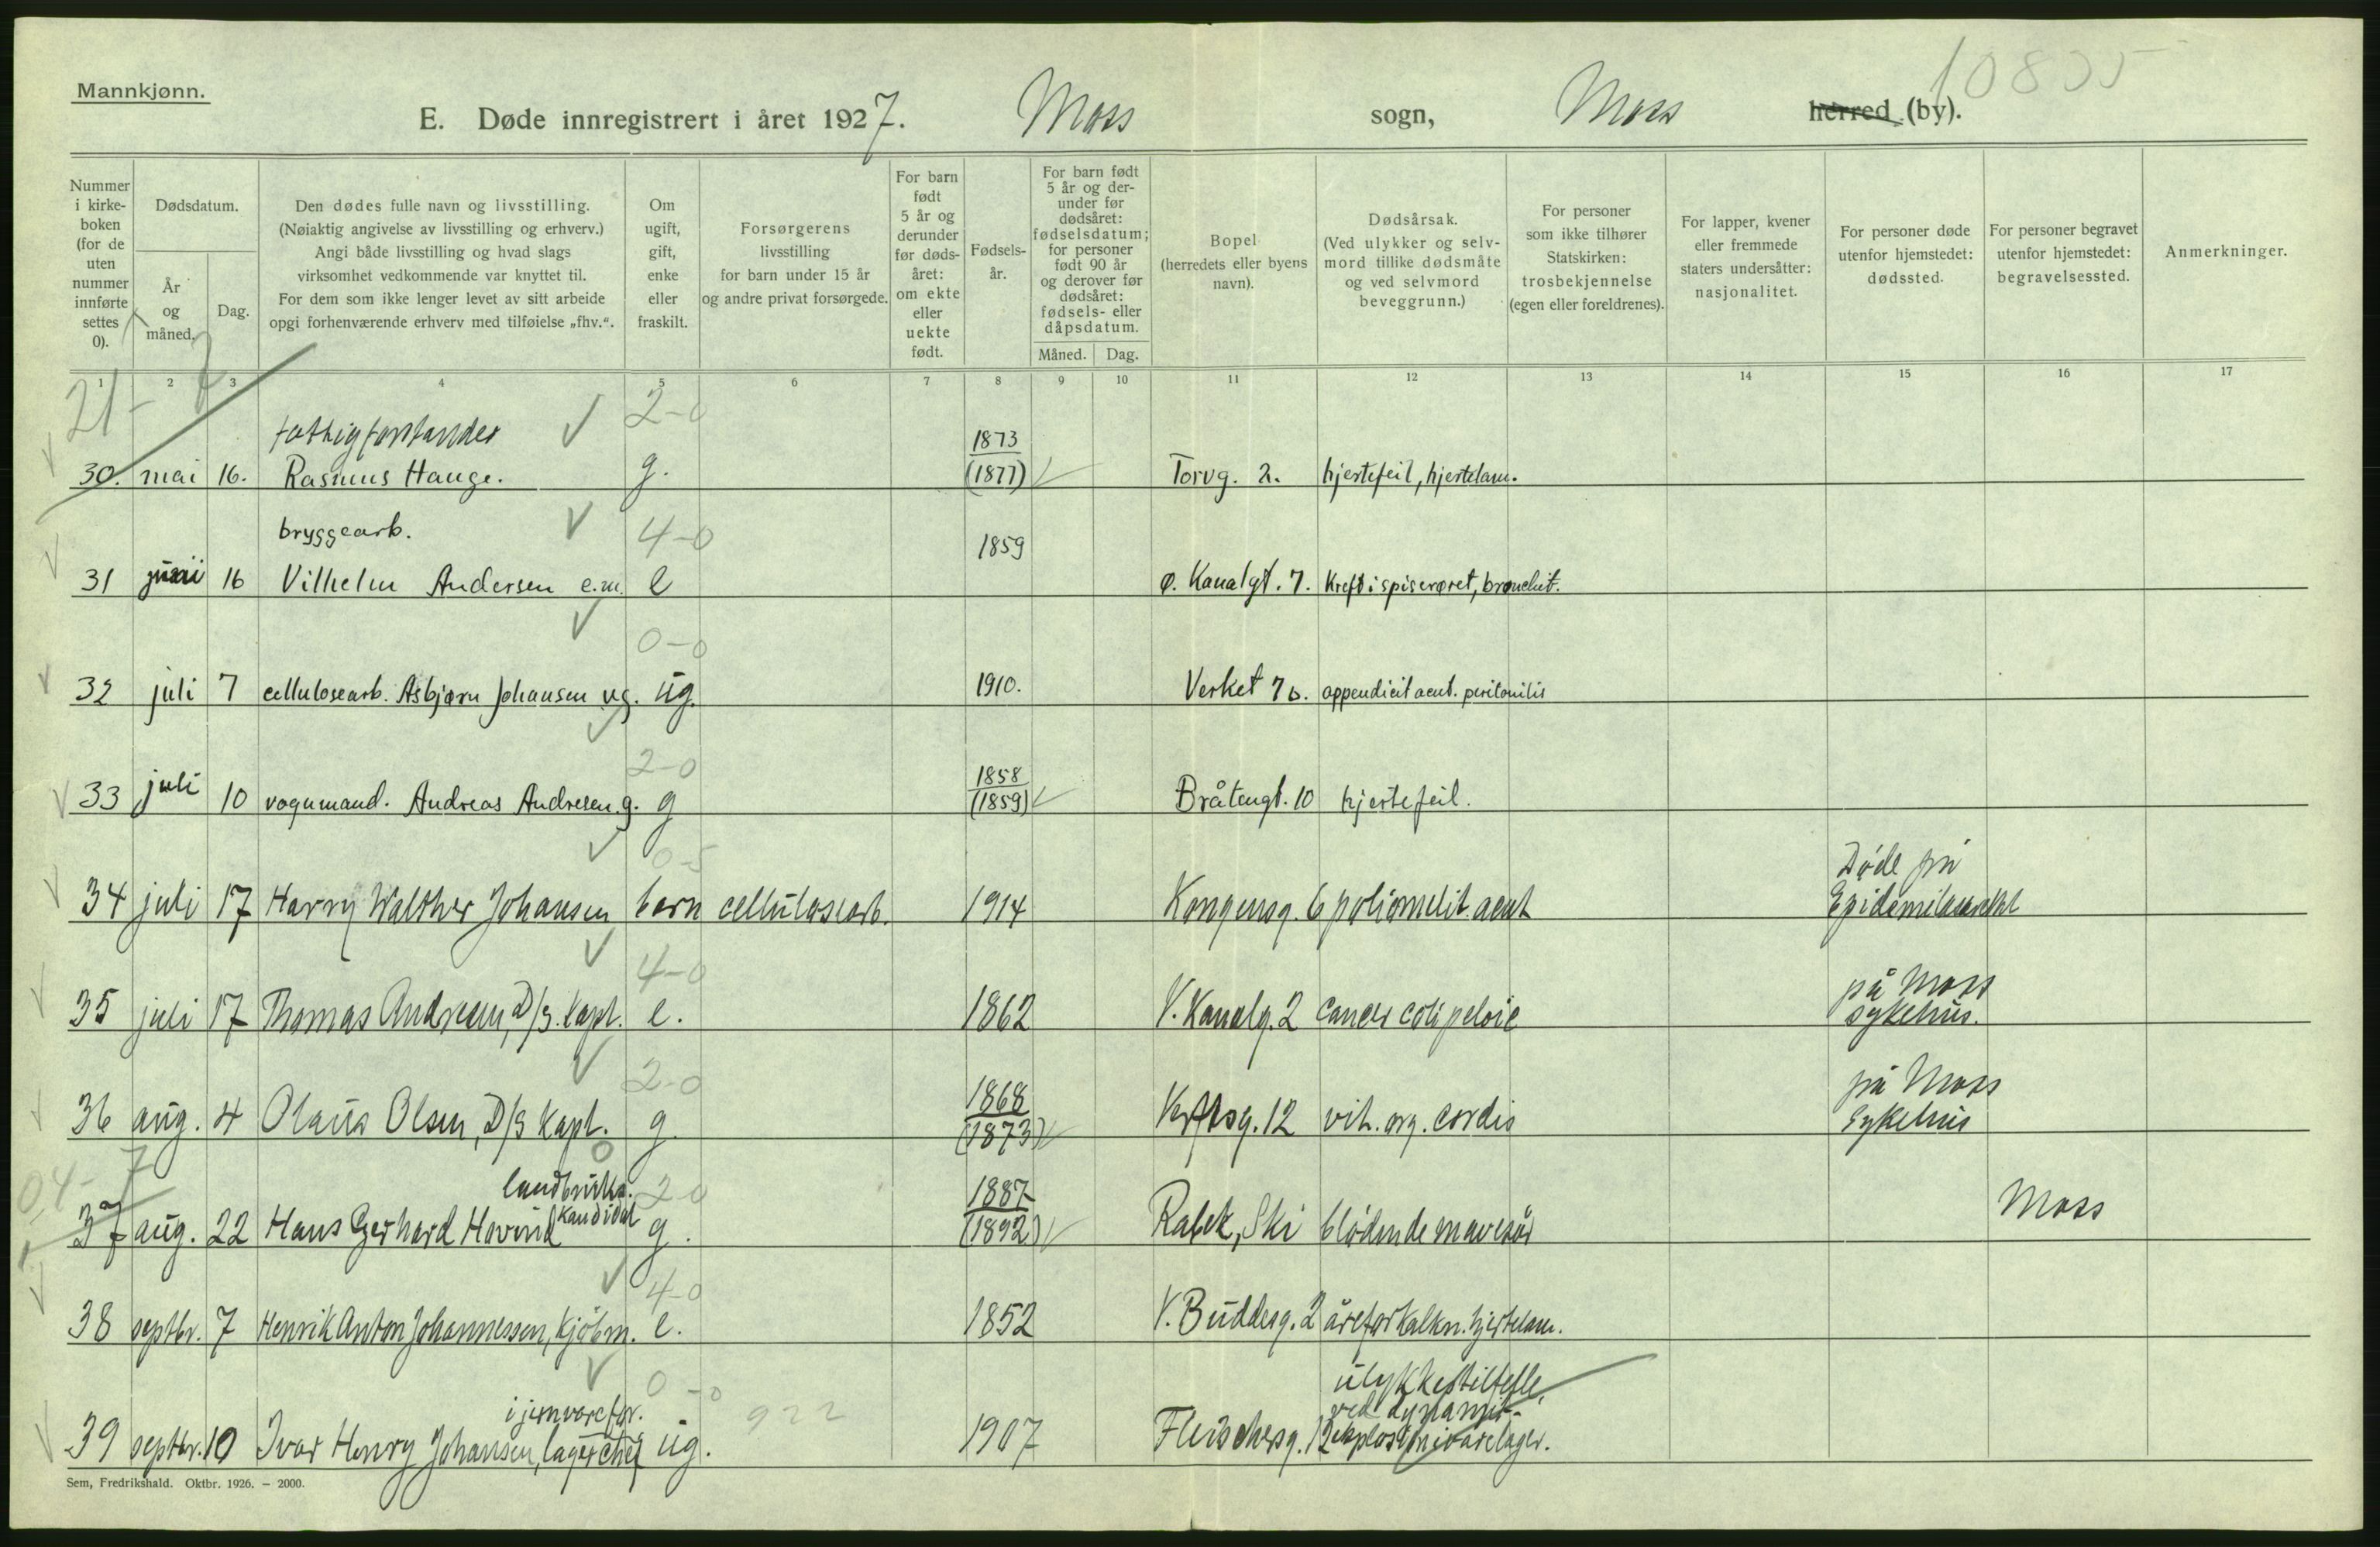 Mannkjønn.
10835
E. Døde innregistrert i året 1927. Moss sogn, Moss herred (by).
Nummer i kirkeboken (for de uten nummer innførte settes 0).
Dødsdatum.
År og måned.
Dag.
Den dødes fulle navn og livsstilling.
(Nøiaktig angivelse av livsstilling og erhverv.)
Angi både livsstilling og hvad slags
virksomhet vedkommende var knyttet til.
For dem som ikke lenger levet av sitt arbeide
opgi forhenværende erhverv med tilføielse „fhv.“.
Om ugift, gift, enke eller fraskilt.
Forsørgerens
livsstilling
for barn under 15 år
og andre privat forsørgede.
For barn født 5 år og derunder før dødsåret: om ekte eller uekte født.
Fødselsår.
For barn født 5 år og derunder før dødsåret: fødselsdatum; for personer født 90 år og derover før dødsåret: fødsels- eller dåpsdatum.
Måned. Dag.
Bopel
(herredets eller byens
navn).
Dødsårsak.
(Ved ulykker og selvmord tillike dødsmåte
og ved selvmord
beveggrunn.)
For personer
som ikke tilhører
Statskirken:
trosbekjennelse
(egen eller foreldrenes).
For lapper, kvener
eller fremmede
staters undersåtter:
nasjonalitet.
For personer døde
utenfor hjemstedet:
dødssted.
For personer begravet
utenfor hjemstedet:
begravelsessted.
Anmerkninger.
1 2 3 4 5 6 7 8 9 10 11 12 13 14 15 16 17
21- 7
fattigforstander 2-0 1873
30. mai 16. Rasmus Hauge. g. (1877) Torvg. 2. hjertefeil, hjertelam.
bryggearb. 4-0 1859
31 16 Vilhelm Andersen e.m. e ø. Kanalgt. 7. Kreft i spiserøret, bronchit.
0-0
32 juli 7 cellulosearb. Asbjørn Johansen ug. ug. 1910. Verket 7b. appendicit acut. peritonitis
2-0 1858
33 juli 10 vognmand. Andreas Andresen g. g (1859) Bråtengt. 10 hjertefeil.
0-5 Døde på
34 juli 17 Harry Walther Johansen barn cellulosearb. 1914 Kongensg. 6 poliomelit. acut
4-0 på Moss
35 juli 17 Thomas Andresen, D/S. kapt. e. 1862 V. Kanalg. 2 sykehus.
2-0 1868 på Moss
36 aug. 4 Olaus Olsen, D/S kapt. g. (1873) Verftsg. 12 vit. org. cordis Sykehus
04- 7
landbruks. 2-0 1887
37 aug. 22 Hans Gerhard Hovind kandidat g. (1892) Rabek, Ski blødende mavesår Moss
4-0
38 septbr. 7 Henrik Anton Johannessen, kjøbm. e. 1852 V. Buddesg. 2 åreforkalkn. hjertelam.
0-0 ulykkestilfelle,
i jernvarefor. 922 ved dynamit-
39 septbr. 10 Ivar Henry Johansen, lagerchef ug. 1907 Fleischersg. 12 eksplosion i varelager.
Sem, Fredrikshald. Oktbr. 1926. – 2000.